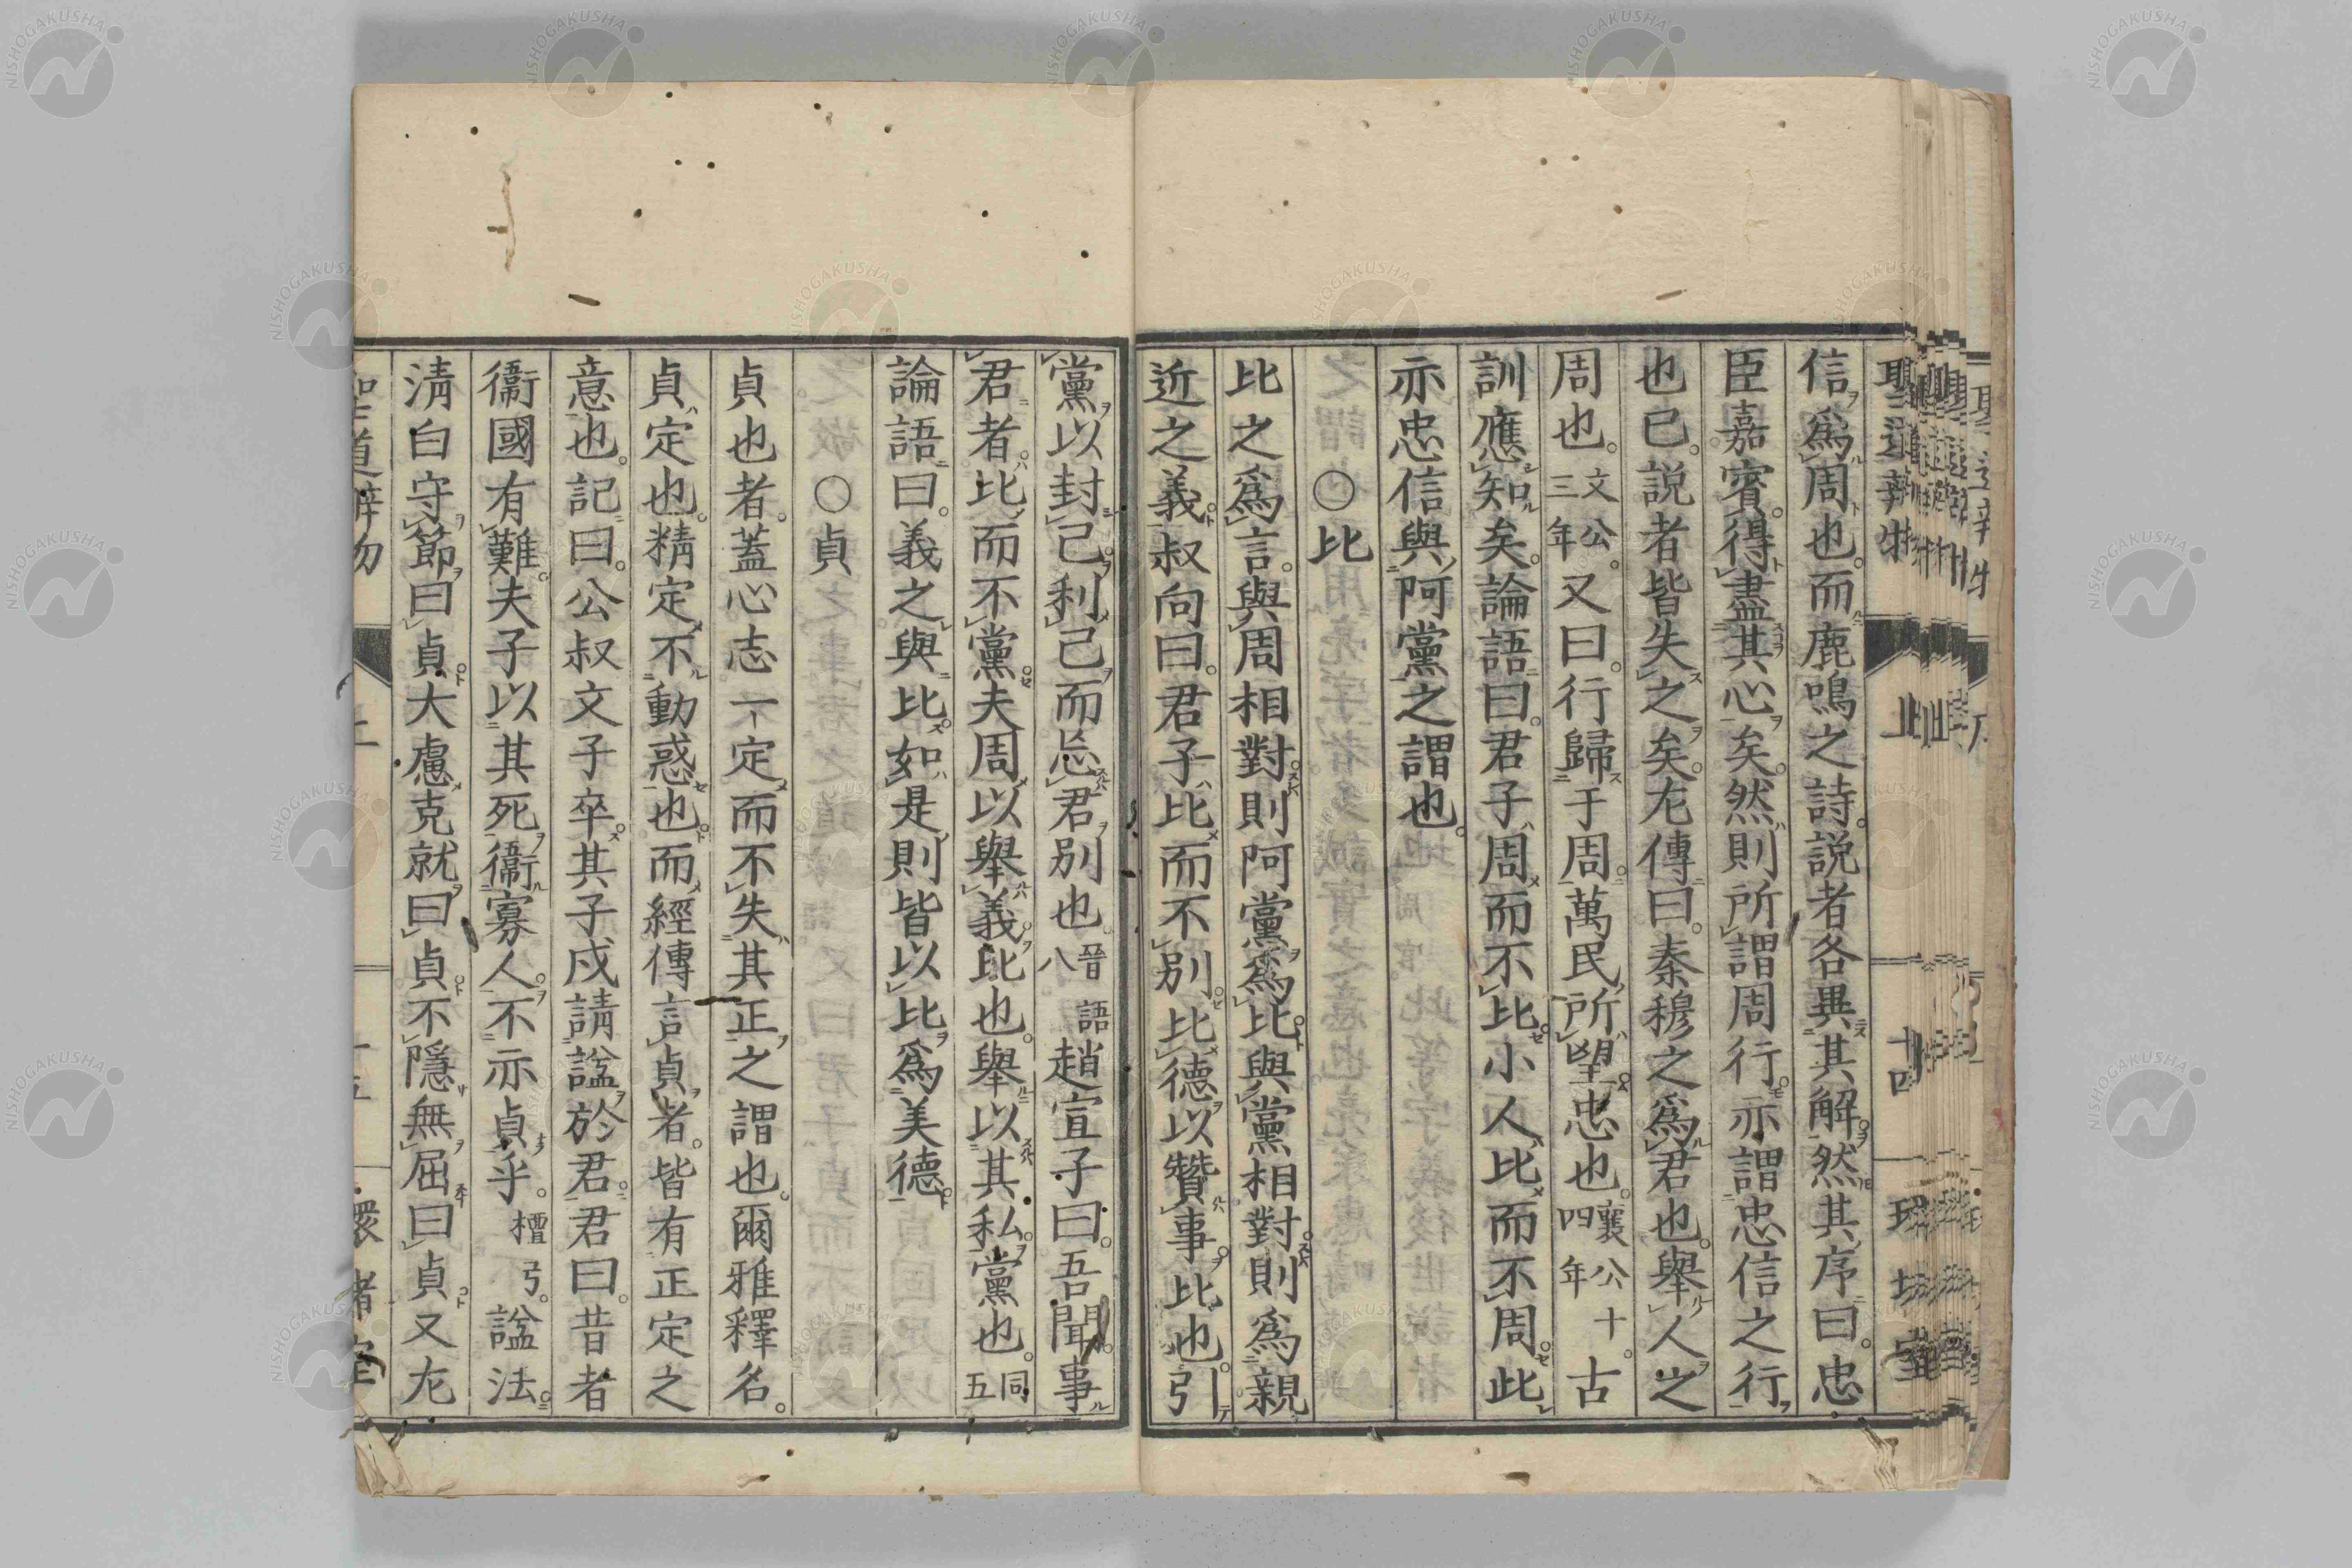 信爲周也。而鹿鳴之詩。説者各異其解。然其序曰。忠
臣嘉賓。得盡其心矣。然則所謂周行。亦謂忠信之行
也已。説者皆失之矣。左傳曰。秦穆之爲君也。舉人之
周也。文公三年。又曰。行歸于周。萬民所望。忠也。襄公十四年。古
訓應知矣。論語曰。君子周而不比。小人比而不周。此
亦忠信與阿黨之謂也。
○比
比之爲言。與周相對。則阿黨爲比。與黨相對。則爲親
近之義。叔向曰。君子比而不別。比德以贊事。比也。引
黨以封己。利己而忘君。別也。晉語八 趙宣子曰。吾聞事
君者。比而不黨。夫周以舉義。比也。舉以其私。黨也。同五
論語曰。義之與比。如是則皆以比爲美德。
○貞
貞也者。蓋心志一定而不失其正之謂也。爾雅釋名。
貞定也。精定不動惑也。而經傳言貞者。皆有正定之
意也。記曰。公叔文子卒。其子戍請謚於君。君曰。昔者
衞國有難。夫子以其死衞寡人。不亦貞乎。檀弓。謚法。
淸白守節曰貞。大慮克就曰貞。不隱無屈曰貞。又左
聖道辨物 上 十四
聖道辨物 上 十五 環堵室
NISHOGAKUSHA